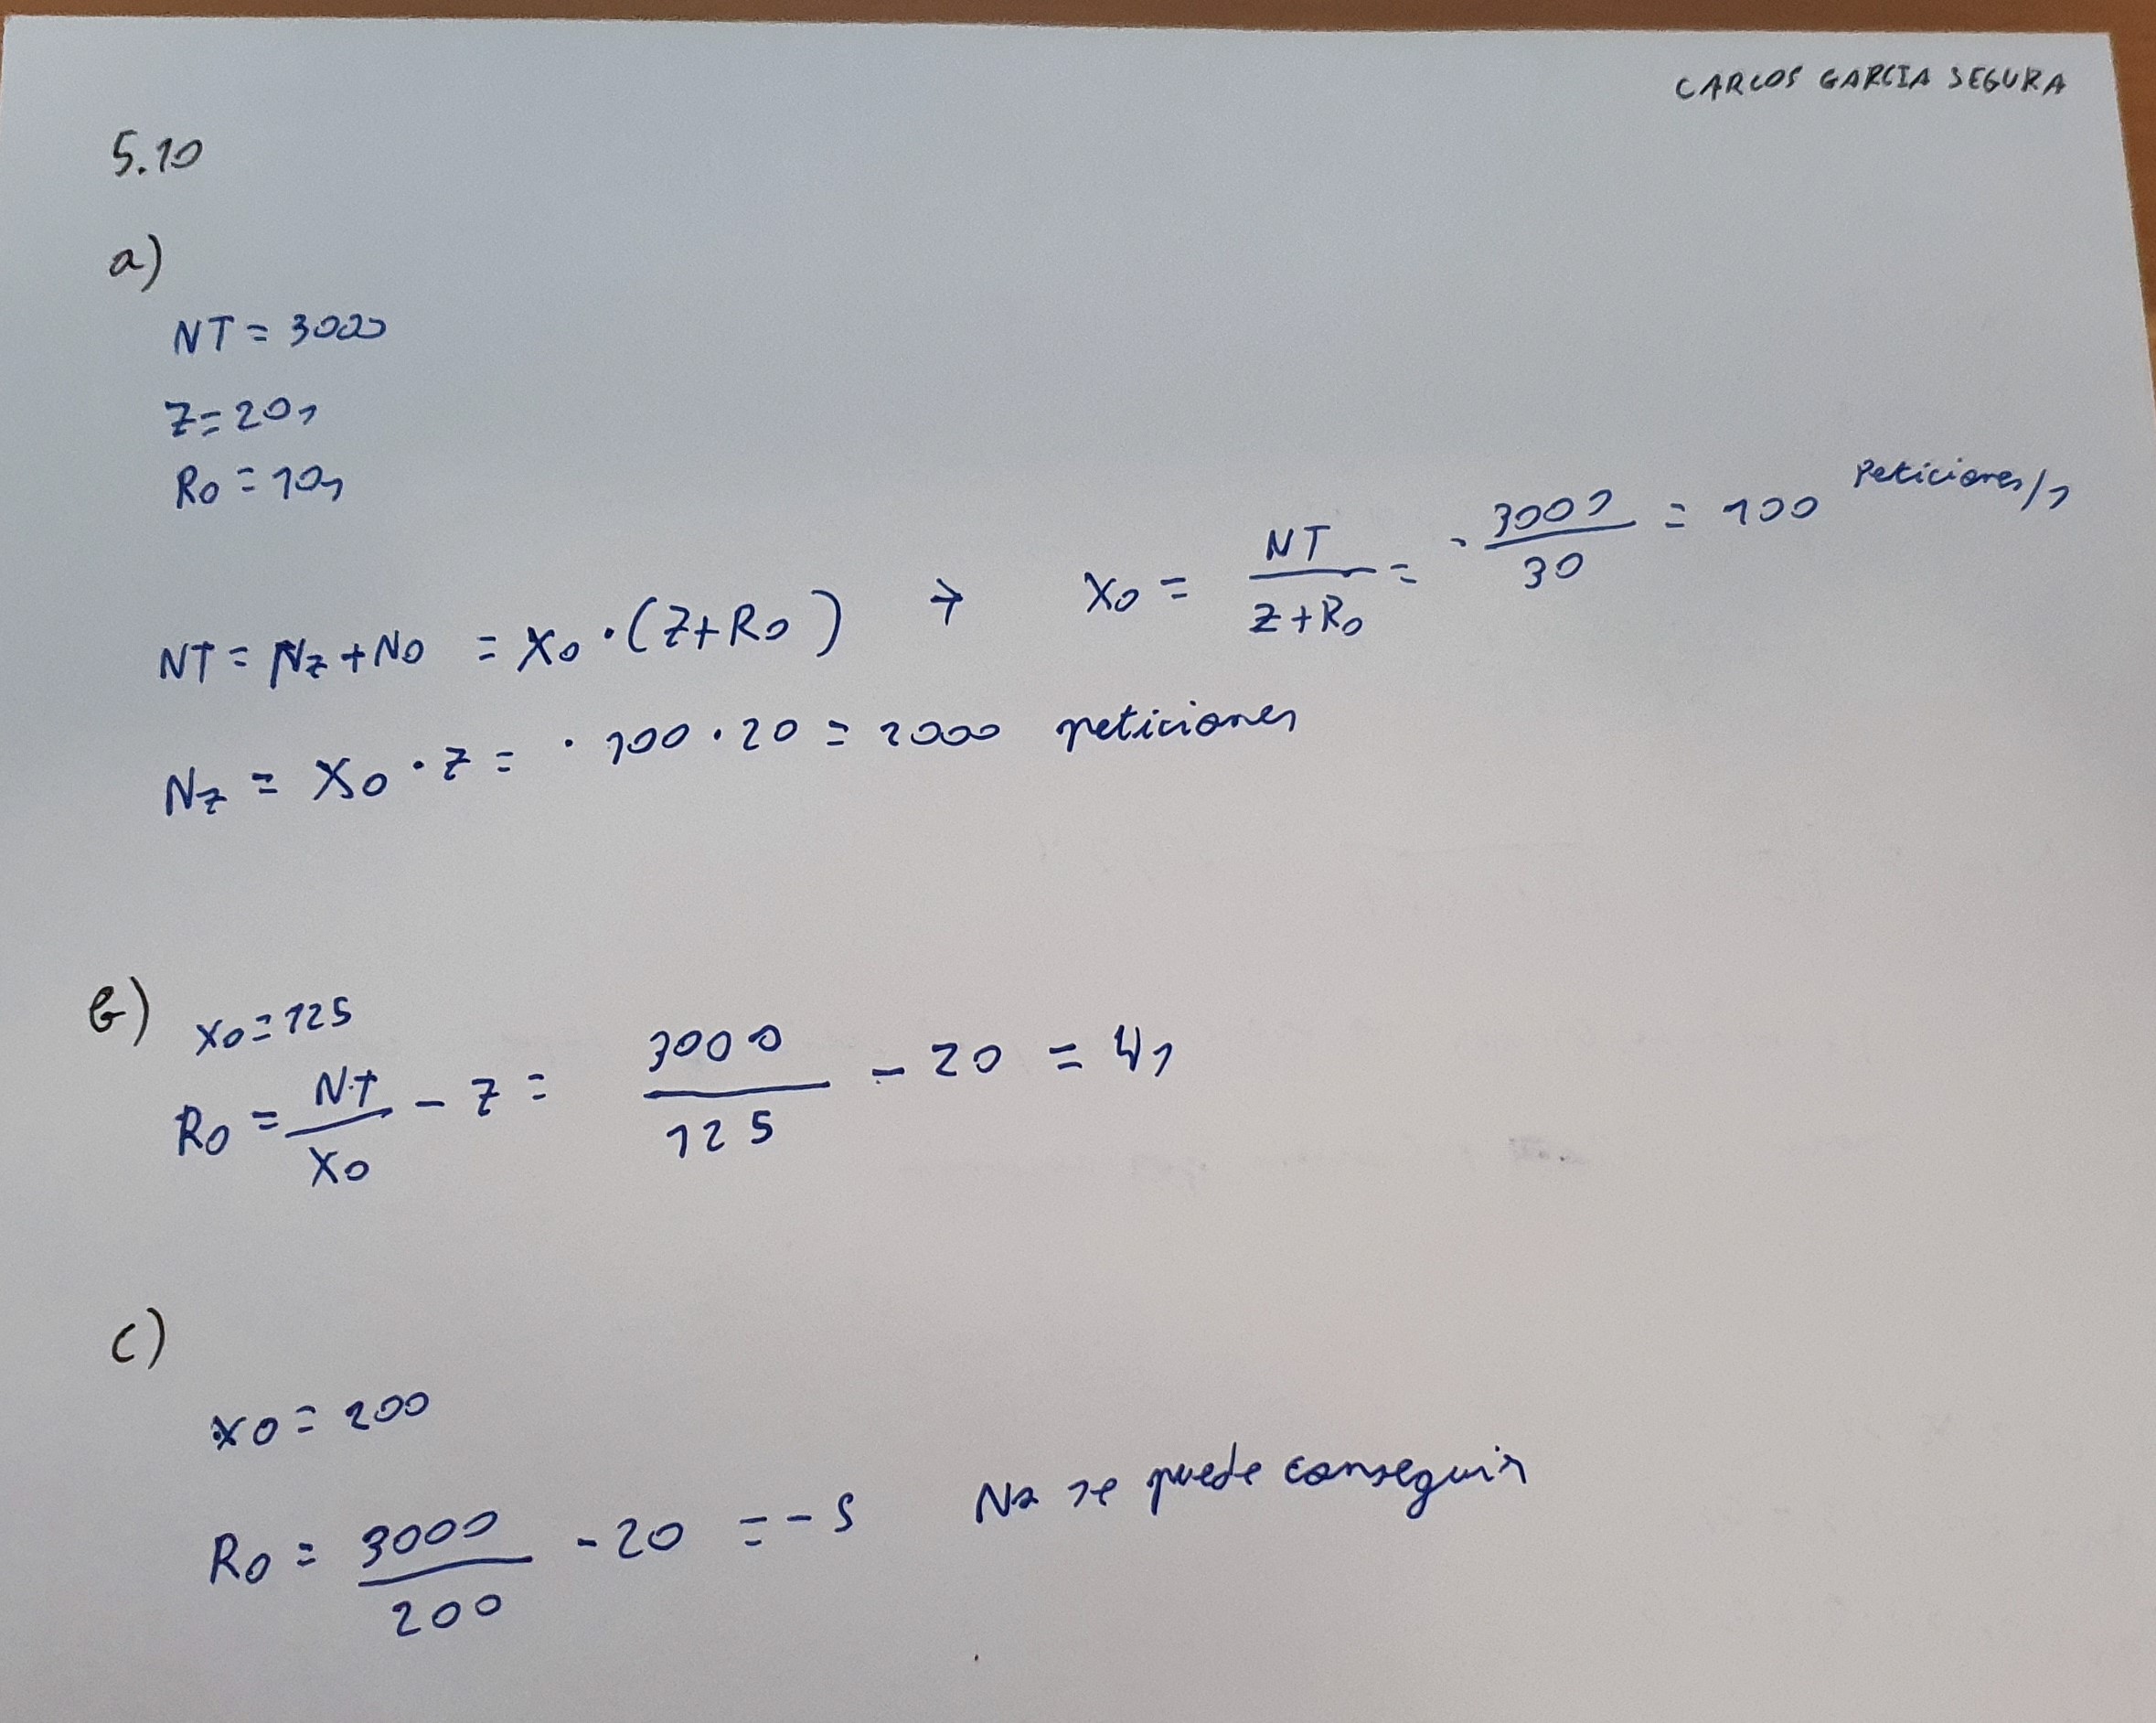 CARLOS GARCIA SEGURA
5.10
a)
NT = 3000
Z = 20s
R0 = 10s
NT = Nz + N0 = X0 · (Z + R0) → X0 = NT / Z + R0 = 3000 / 30 = 100 Peticiones/s
Nz = X0 · Z = · 100 · 20 = 2000 peticiones
b) X0 = 125
R0 = NT / X0 - Z = 3000 / 125 - 20 = 4s
c)
X0 = 200
R0 = 3000 / 200 - 20 = -5 No se puede conseguir